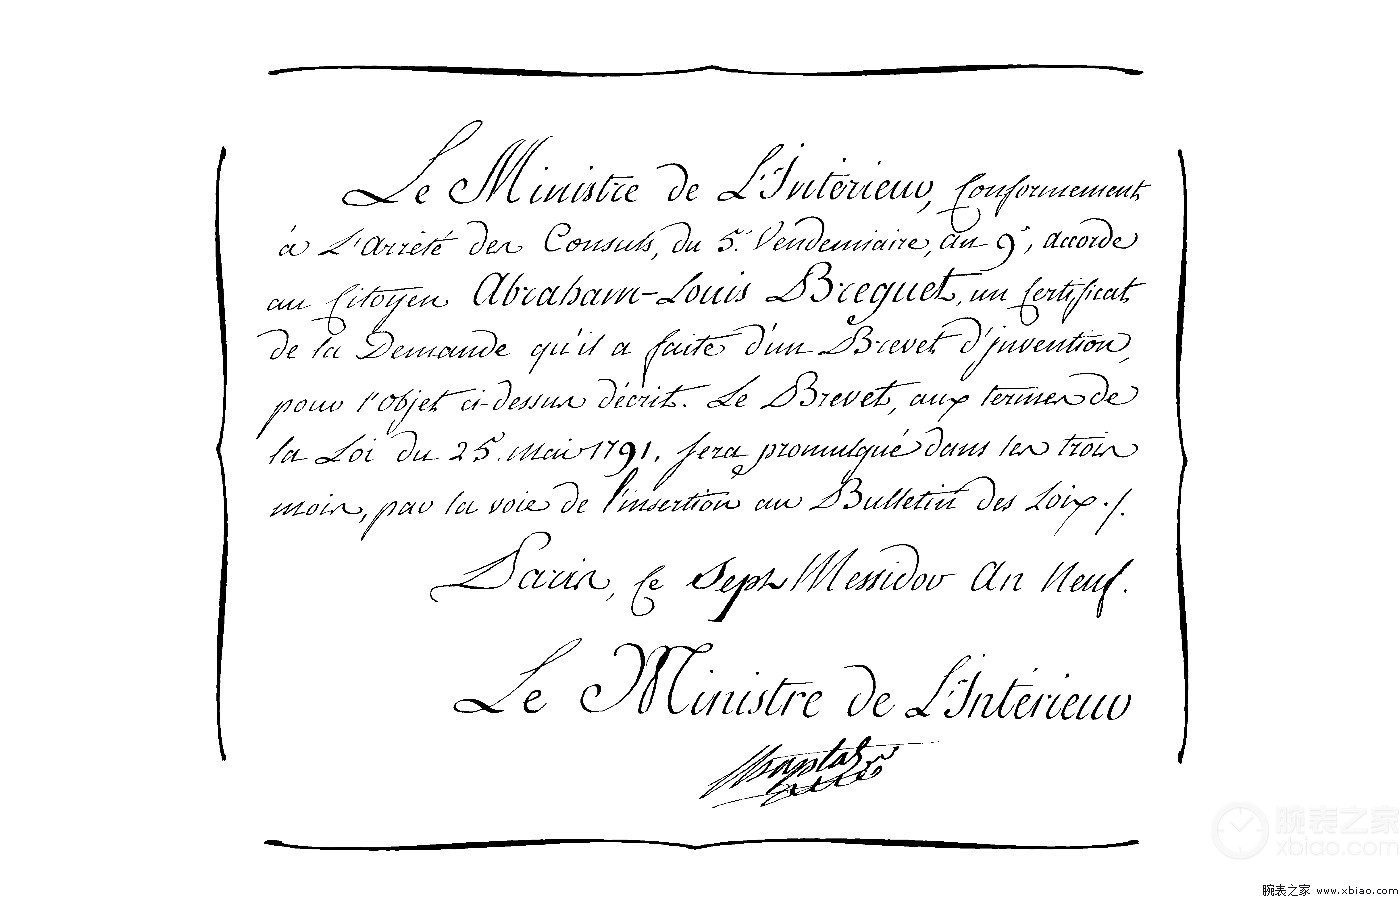 Le Ministre de L'Intérieur, Conformement
à L'Arrêté des Consuls, du 5. Vendemiaire, an 9, accorde
au Citoyen Abraham-Louis Breguet, un Certificat
de la Demande qu'il a faite d'un Brevet d'invention,
pour l'objet ci-dessus décrit. Le Brevet, aux termes de
la Loi du 25. Mai 1791, sera promulgué dans les trois
mois, par la voie de l'insertion au Bulletin des Loix ./.
Paris, Ce Sept Messidor An Neuf.
Le Ministre de L'Intérieur
Chaptal
腕表之家
xbiao.com
腕表之家 www.xbiao.com